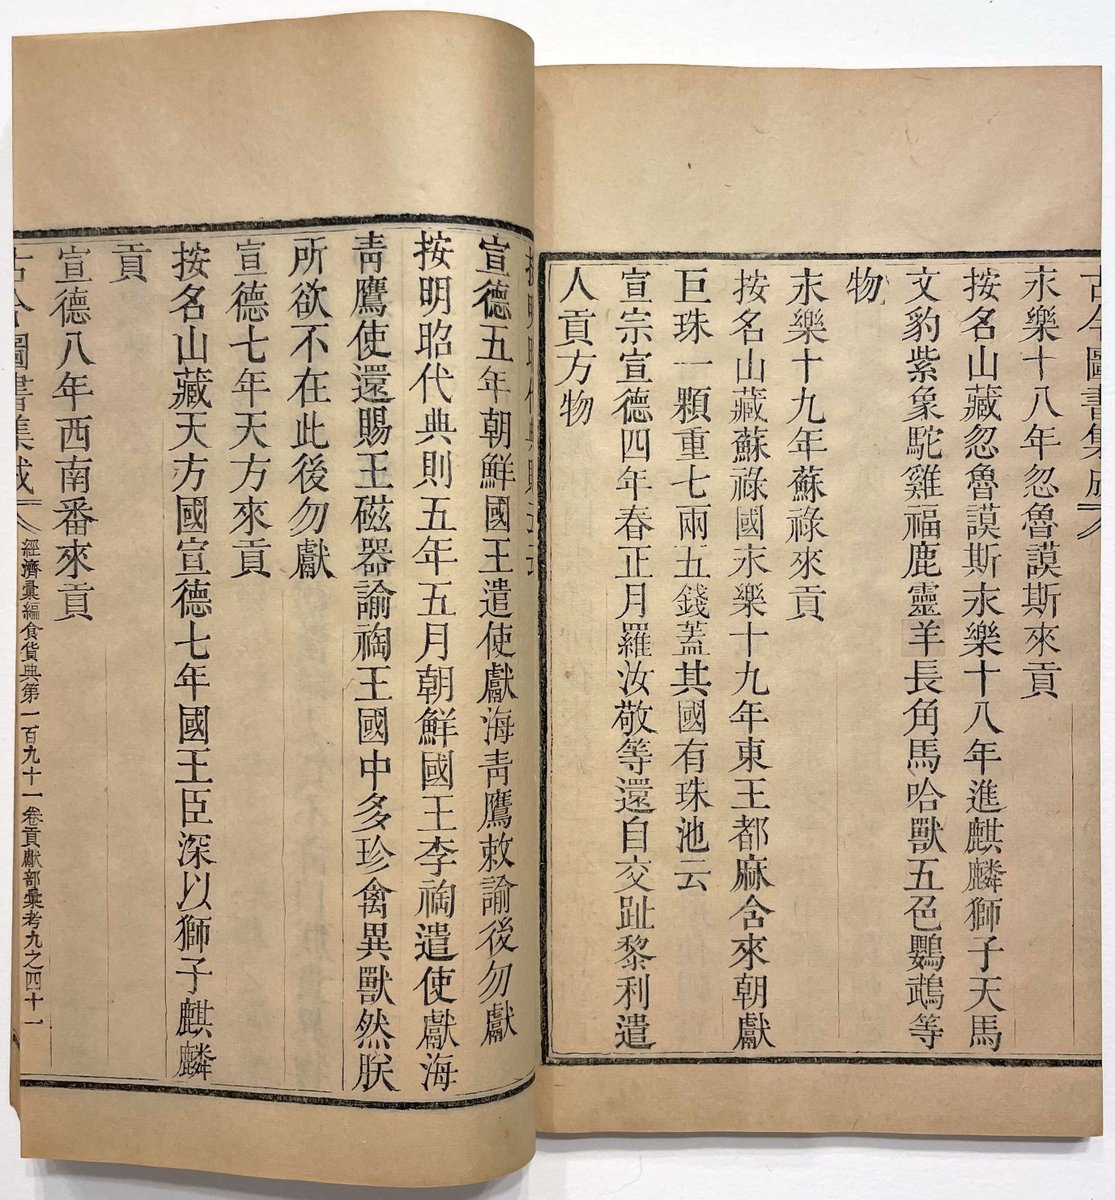 古今圖書集成
永樂十八年忽魯謨斯來貢
按名山藏忽魯謨斯永樂十八年進麒麟獅子天馬
文豹紫象駝雞福鹿靈羊長角馬哈獸五色鸚鵡等
物
永樂十九年蘇祿來貢
按名山藏蘇祿國永樂十九年東王都麻含來朝獻
巨珠一顆重七兩五錢蓋其國有珠池云
宣宗宣德四年春正月羅汝敬等還自交趾黎利遣
人貢方物
宣德五年朝鮮國王遣使獻海靑鷹敕諭後勿獻
按明昭代典則五年五月朝鮮國王李祹遣使獻海
靑鷹使還賜王磁器諭祹王國中多珍禽異獸然朕
所欲不在此後勿獻
宣德七年天方來貢
按名山藏天方國宣德七年國王臣深以獅子麒麟
貢
宣德八年西南番來貢
古今圖書集成 經濟彙編食貨典第一百九十一卷貢獻部彙考九之四十一